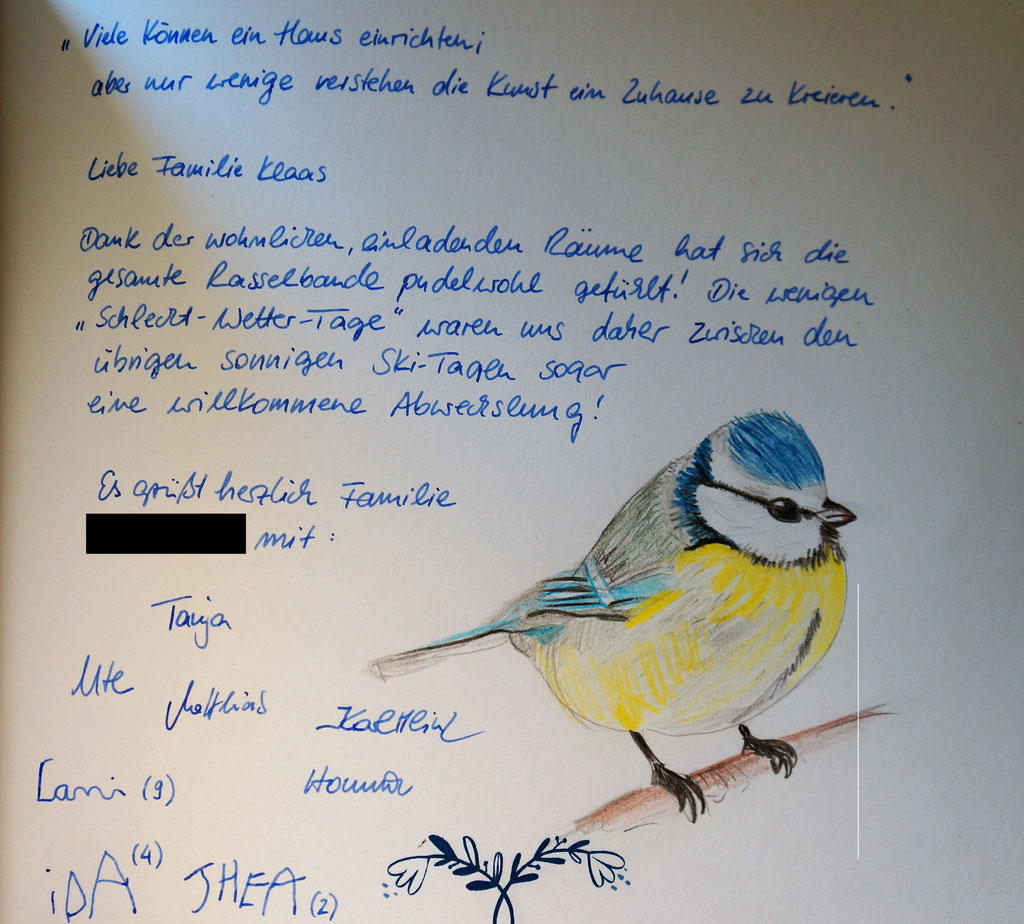 „Viele können ein Haus einrichten;
aber nur wenige verstehen die Kunst ein Zuhause zu kreieren."
Liebe Familie Klaas
Dank der wohnlichen, einladenden Räume hat sich die
gesamte Rasselbande pudelwohl gefühlt! Die wenigen
„Schlecht-Wetter-Tage“ waren uns daher zwischen den
übrigen sonnigen Ski-Tagen sogar
eine willkommene Abwechslung!
Es grüßt herzlich Familie
mit:
Tanja
Ute
Matthias
(9)
iDA (4)
(2)